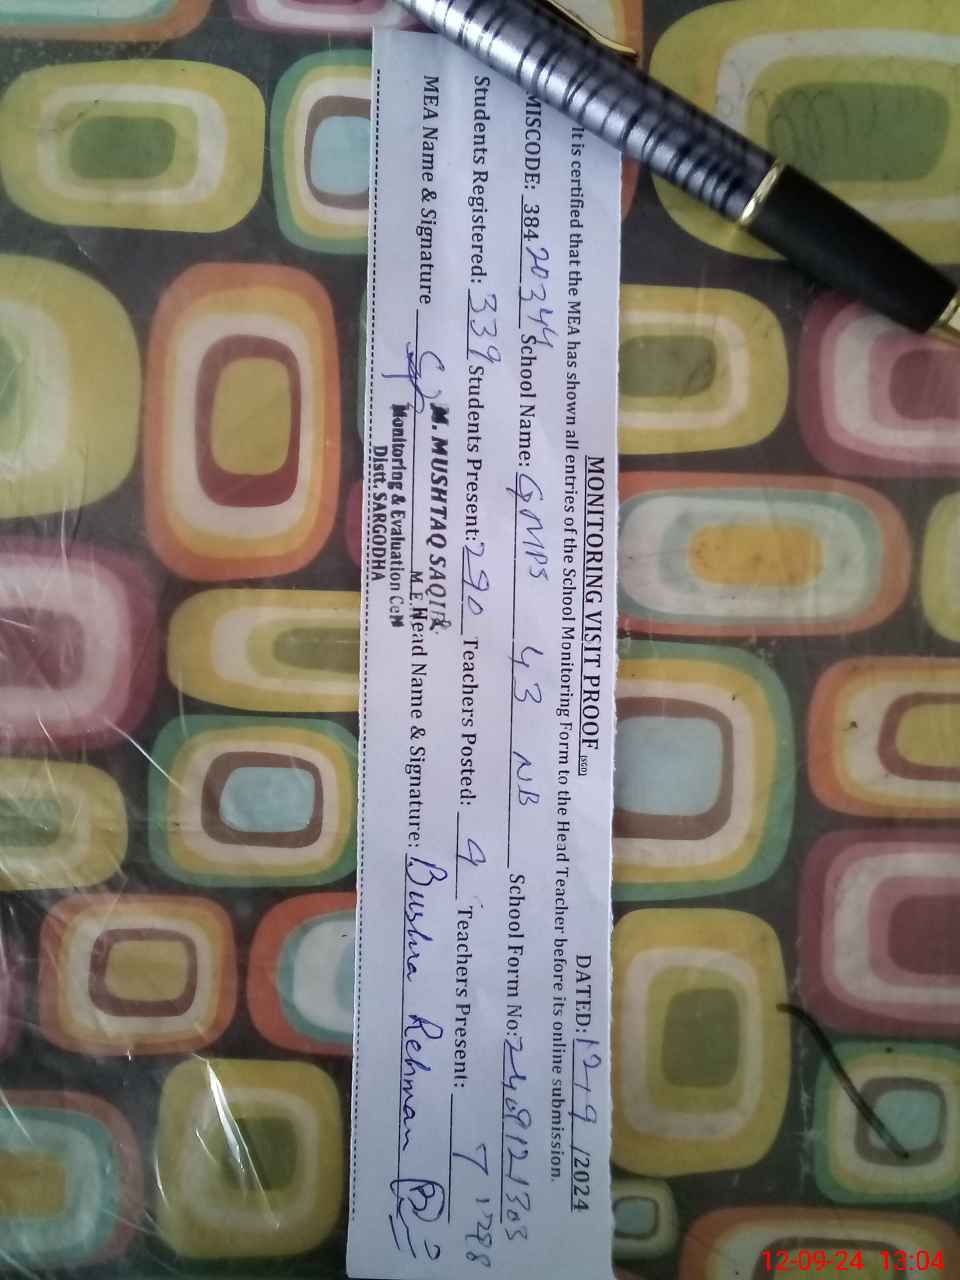 MONITORING VISIT PROOF (SGD) DATED: 12/9/2024
It is certified that the MEA has shown all entries of the School Monitoring Form to the Head Teacher before its online submission.
MISCODE: 38420344 School Name: GMPS 43 NB School Form No: 2409121303
Students Registered: 339 Students Present: 290 Teachers Posted: 9 Teachers Present: 7
MEA Name & Signature Head Name & Signature: Bushra Rehman
M. MUSHTAQ SAQIB
Monitoring & Evaluation Cell
Distt. SARGODHA
12-09-24 13:04